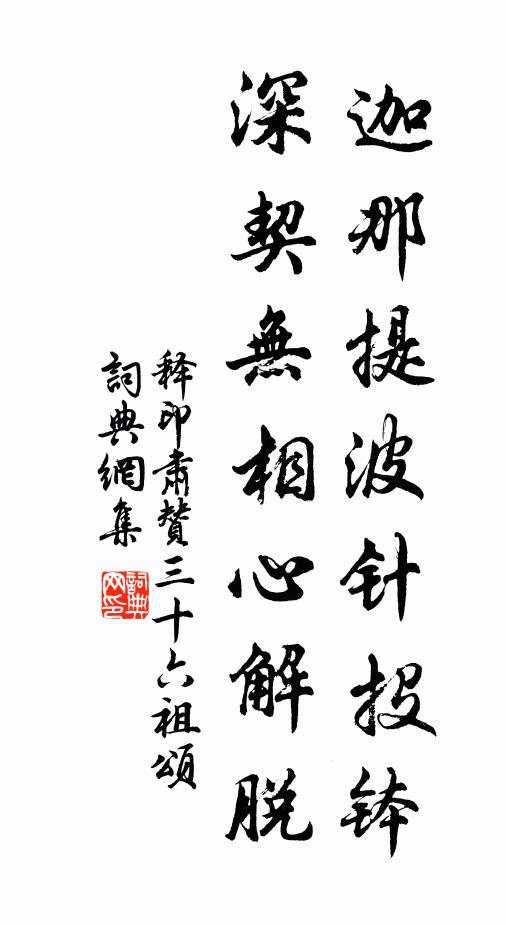 迦那提波针投钵
深契無相心解脱
释印肃赞三十六祖頌
詞典網集
詞典网印